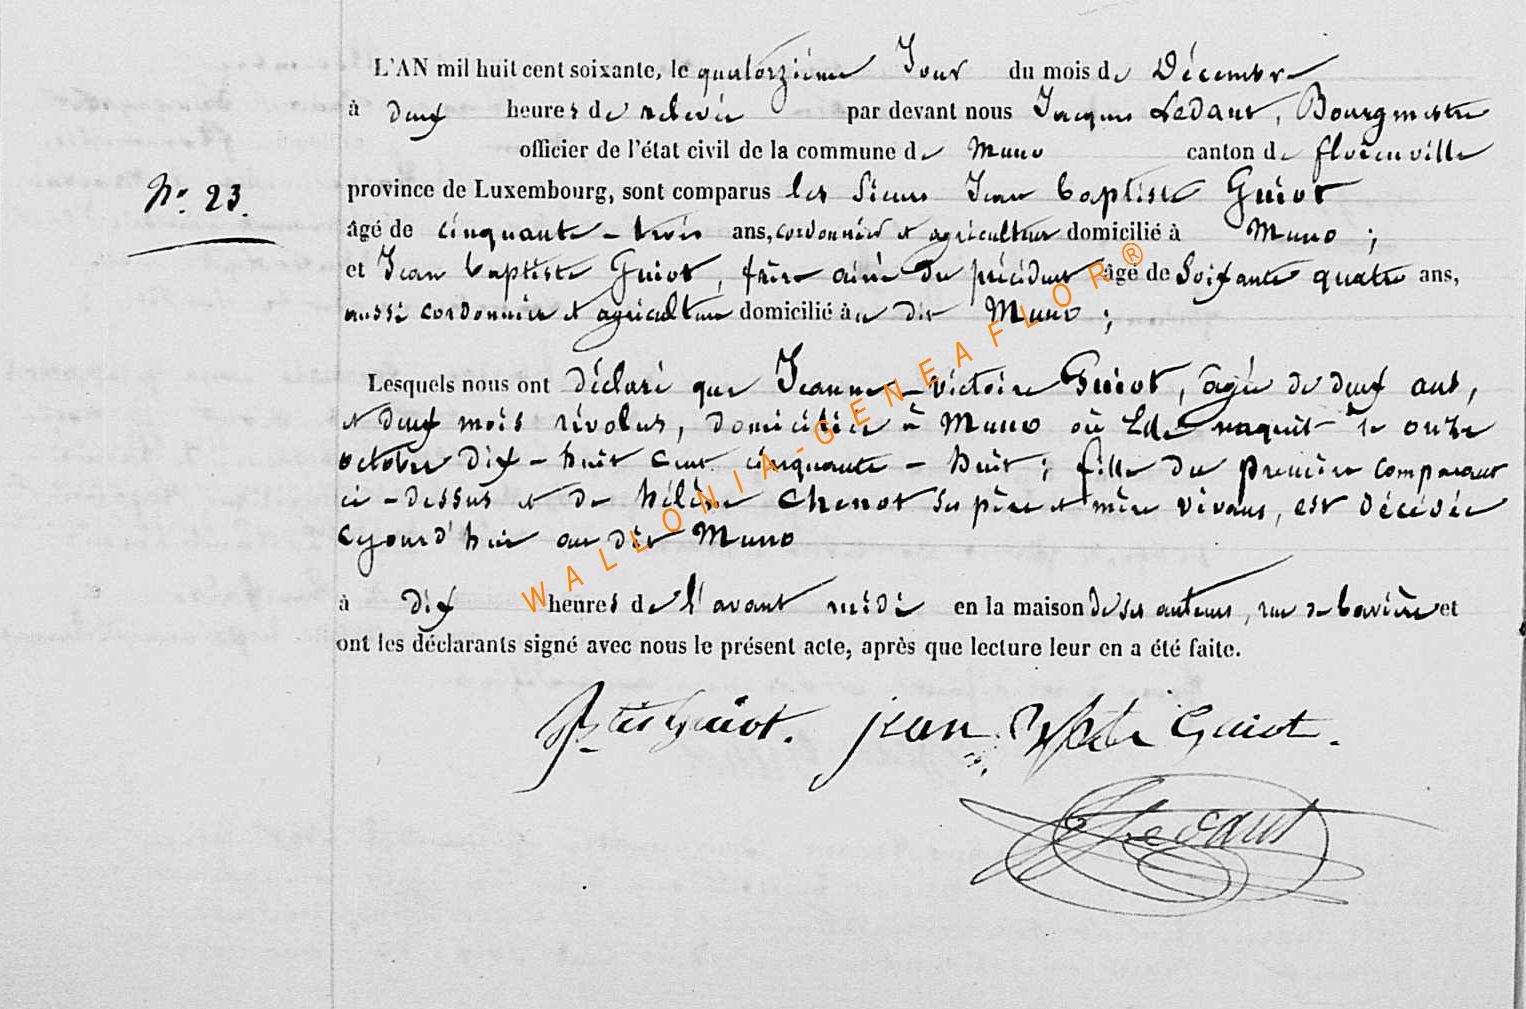 L'AN mil huit cent soixante, le quatorzième Jour du mois de Décembre
à deux heures de relevée par devant nous Jacques Ledant, Bourgmestre
officier de l'état civil de la commune de Muno canton de florenville
N° 23.
province de Luxembourg, sont comparus les Sieurs Jean baptiste Guiot
âgé de cinquante-trois ans, cordonnier et agriculteur domicilié à Muno ;
et Jean baptiste Guiot, frère ainé du précédent âgé de Soixante quatre ans,
aussi cordonnier et agriculteur domicilié à u dit Muno ;
Lesquels nous ont déclaré que Jeanne-victoire Guiot, âgée de deux ans,
et deux mois révolus, domiciliée à Muno où Elle naquit le onze
octobre dix-huit cent cinquante-huit ; fille du premier comparant
ci-dessus et de hélène Chenot ses père et mère vivans, est décédée
cejourd'hui au dit Muno
à dix heures de l'avant midi en la maison de ses auteurs, rue de bavière et
ont les déclarants signé avec nous le présent acte, après que lecture leur en a été faite.
Guiot. jean Bte Guiot.
JLedant
WALLONIA-GENEAFLOR®